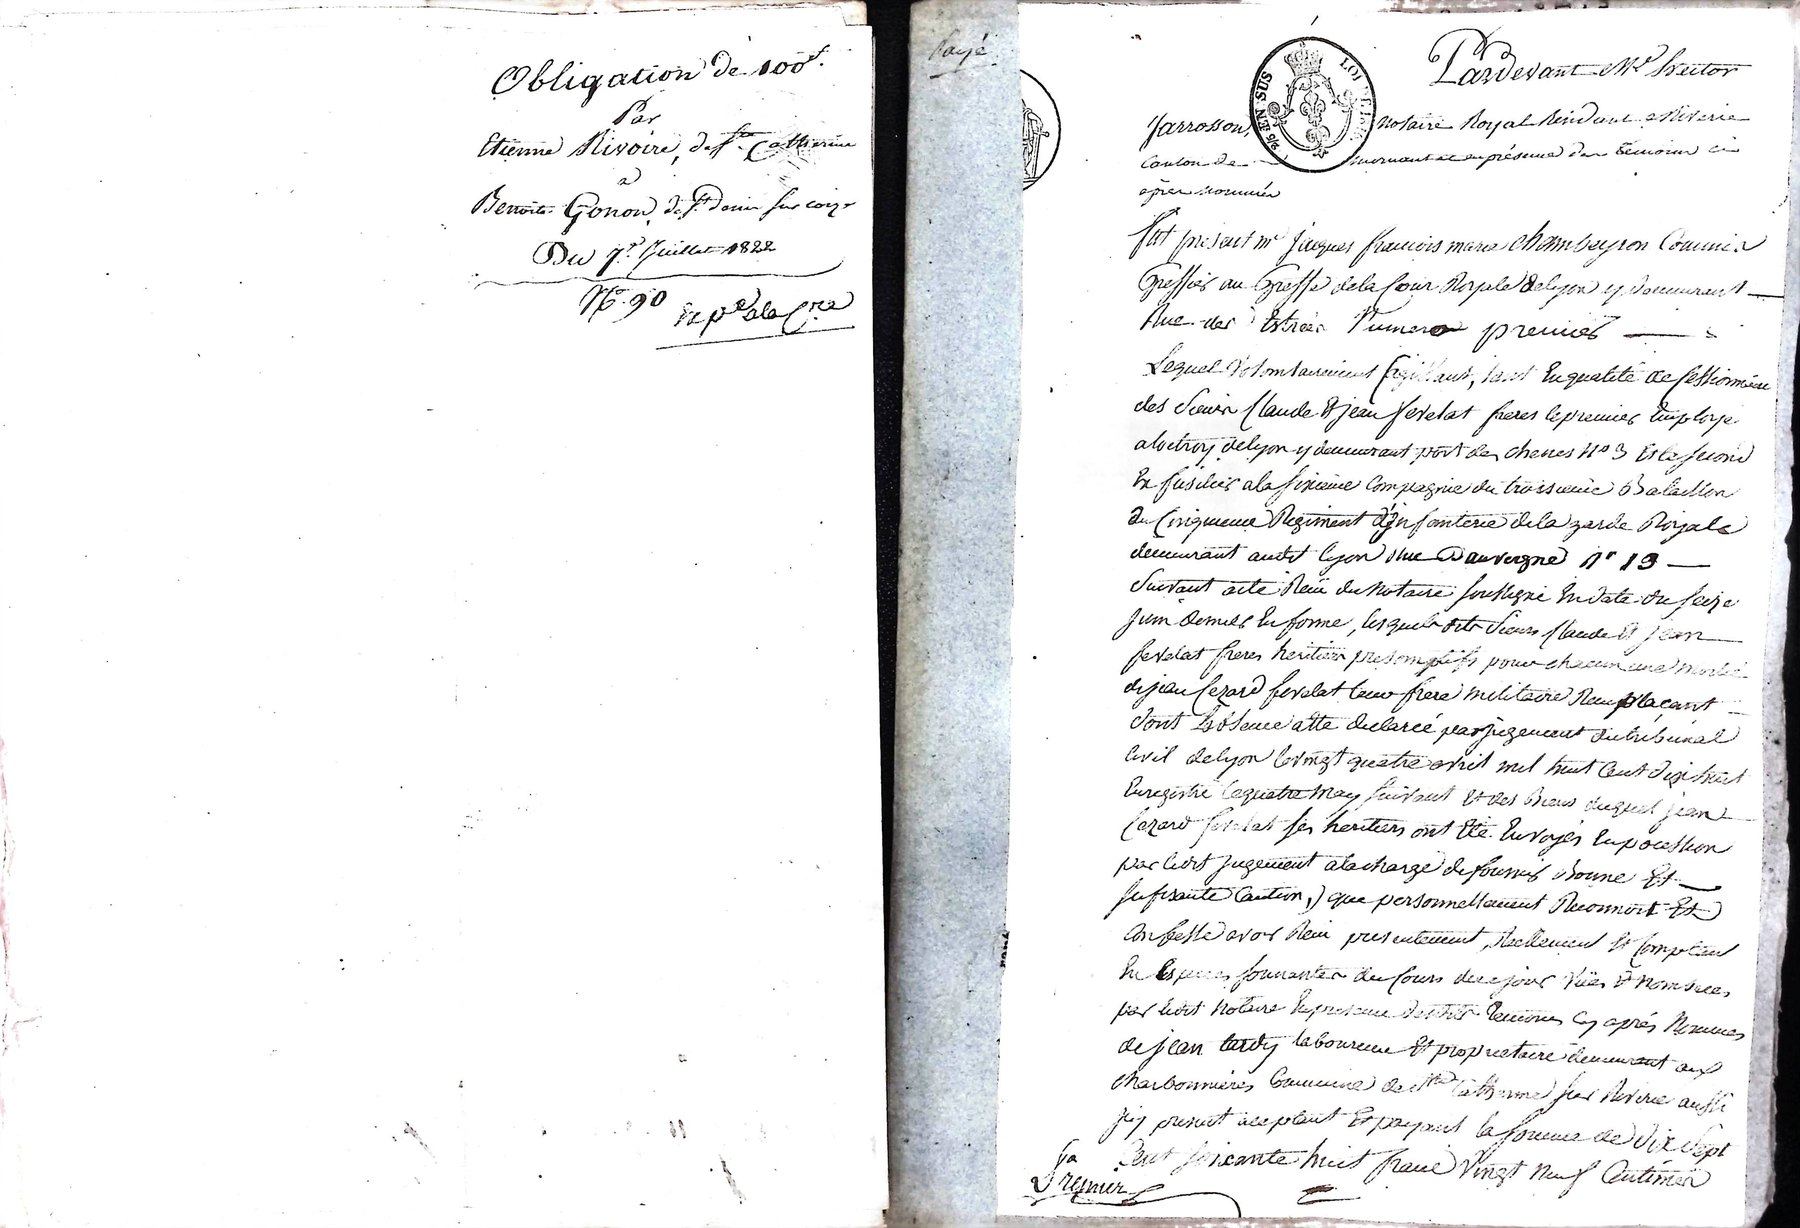 Obligation de 100f.
Par
Etienne Rivoire, de Ste Catherine
a
Benoite Gonon, de St denis sur coize
Du 7e Juillet 1822
No. 90
Payé
25 EN SUS LOI DE
Pardevant Me hector
Jarrosson, notaire Royal Résidant a Riverie
canton de mornant et en présence des témoins ci
après nommés
fut présent mr jacques francois marie chambeyron Commis
Greffier au Greffe de la Cour Royale de lyon y demeurant
Rue des Estrées Numero premier
Lequel volontairement agissant, tant En qualité de Cessionnaire
des Sieurs Claude Et jean ferelat freres le premier Employé
a loctroy de lyon y demeurant port des chenes No 3 Et le second
En fusilier a la sixieme compagnie du troisieme Bataillon
du Cinquieme Regiment d'jnfanterie de la garde Royale
demeurant audit lyon Rue D'auvergne no 19
Suivant acte Recu du notaire soussigné En date du seize
juin dernier En forme, lesquels dits Sieurs Claude Et jean
ferelat freres heritiers presomptifs pour chacun une moitié
de jean Cezard ferelat leur frere militaire Remplaçant
dont L'absence a été declarée par jugement du tribunal
Civil de lyon le vingt quatre avril mil huit Cent dix huit
Enregistré le quatre may suivant Et des Biens duquel jean
Cezard ferelat ses heritiers ont Eté Envoyés En possession
par ledit jugement a la charge de fournir Bonne Et
sufisante Caution,) que personnellement Reconnoit Et
Confesse avoir Recu presentement, Reellement Et Comptant
En Especes sonnantes du Cours de ce jour Vües Et Nombrées
par ledit Notaire En presence desdits temoins Cy aprés Nommés
de jean tardy laboureur Et proprietaire demeurant aux
charbonnieres Commune de Ste Catherine sur Riverie aussi
jcy present acceptant Et payant la somme de dix sept
Cent soixante huit franc Vingt Neuf Centimes